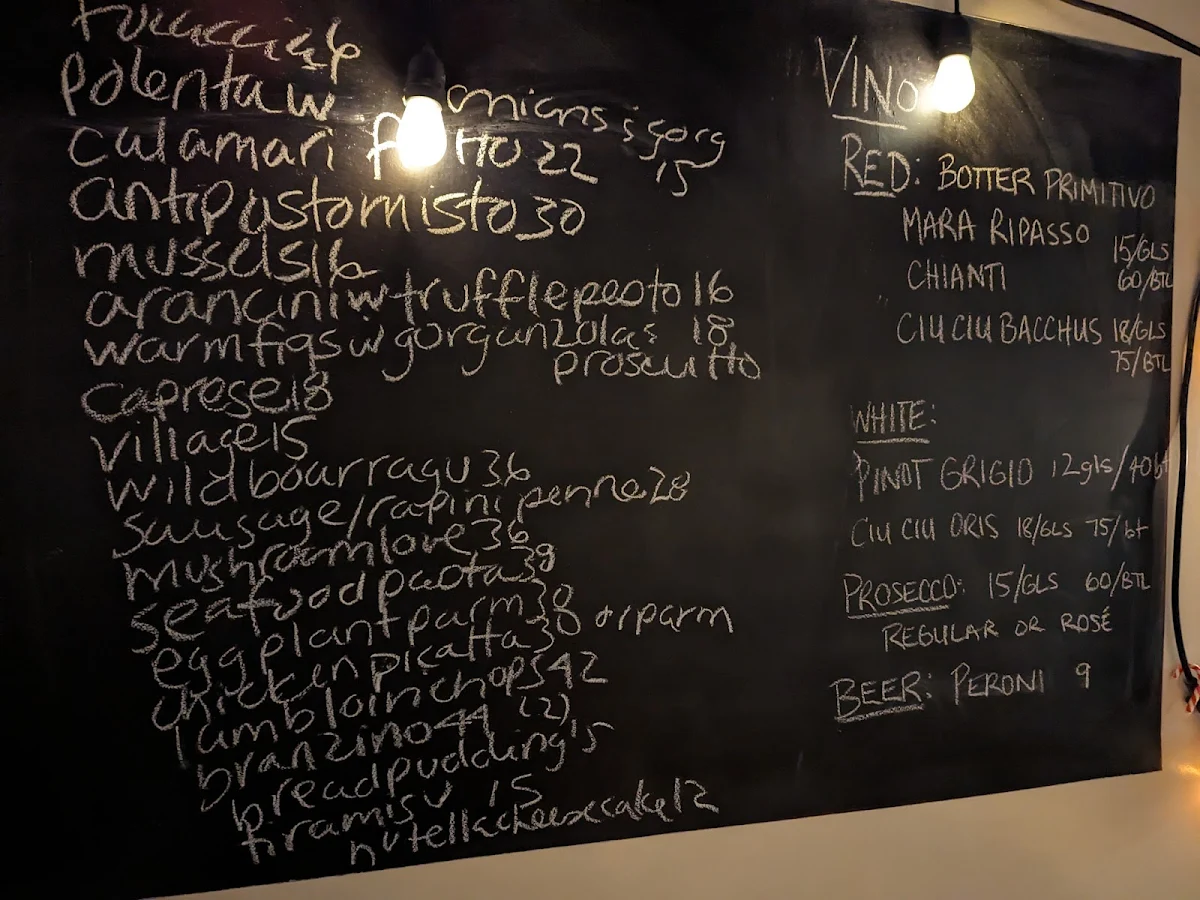 focaccia 6
polenta w onions & gorg
15
calamari fritto 22
antipasto misto 30
mussels 16
arancini w truffle pesto 16
warm figs w gorganzola & 18
proscuitto
caprese 18
village 15
wild bour ragu 36
sausage/rapini penne 28
mushroom love 36
seafood pasta 38
eggplant parm 30
chicken picatta 30 or parm
lamb loin chops 42
branzino 44 (2)
bread pudding 15
tiramisu 15
nutella cheesecake 12
VINO
RED: BOTTER PRIMITIVO
MARA RIPASSO
15/GLS
CHIANTI
60/BTL
CIU CIU BACCHUS 18/GLS
75/BTL
WHITE:
PINOT GRIGIO 12gls/40bt
CIU CIU ORIS 18/GLS 75/bt
PROSECCO: 15/GLS 60/BTL
REGULAR OR ROSÉ
BEER: PERONI 9